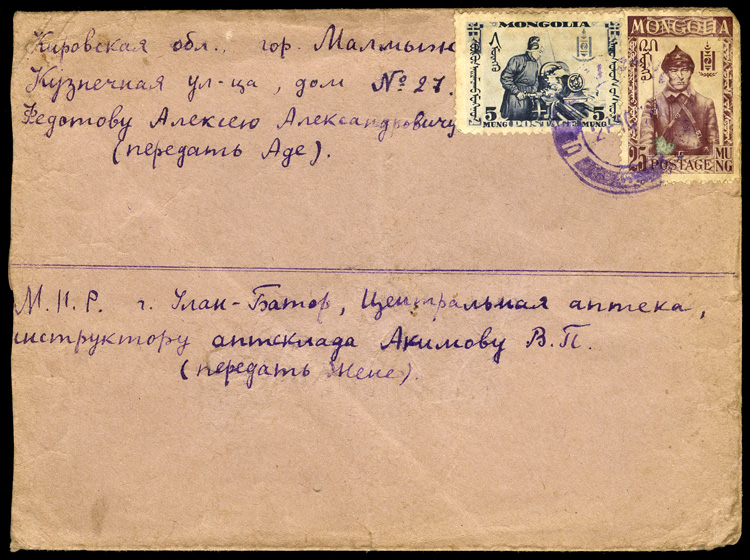 Кировская обл., гор. Малмыж
Кузнечная ул-ца, дом № 27.
Федотову Алексею Александровичу
(передать Аде).
MONGOLIA
5 5
MUNG POSTAGE MUNG
MONGOLIA
25 POSTAGE MUNG
М.Н.Р. г. Улан-Батор, Центральная аптека,
инструктору аптсклада Акимову В.П.
(передать Жене).